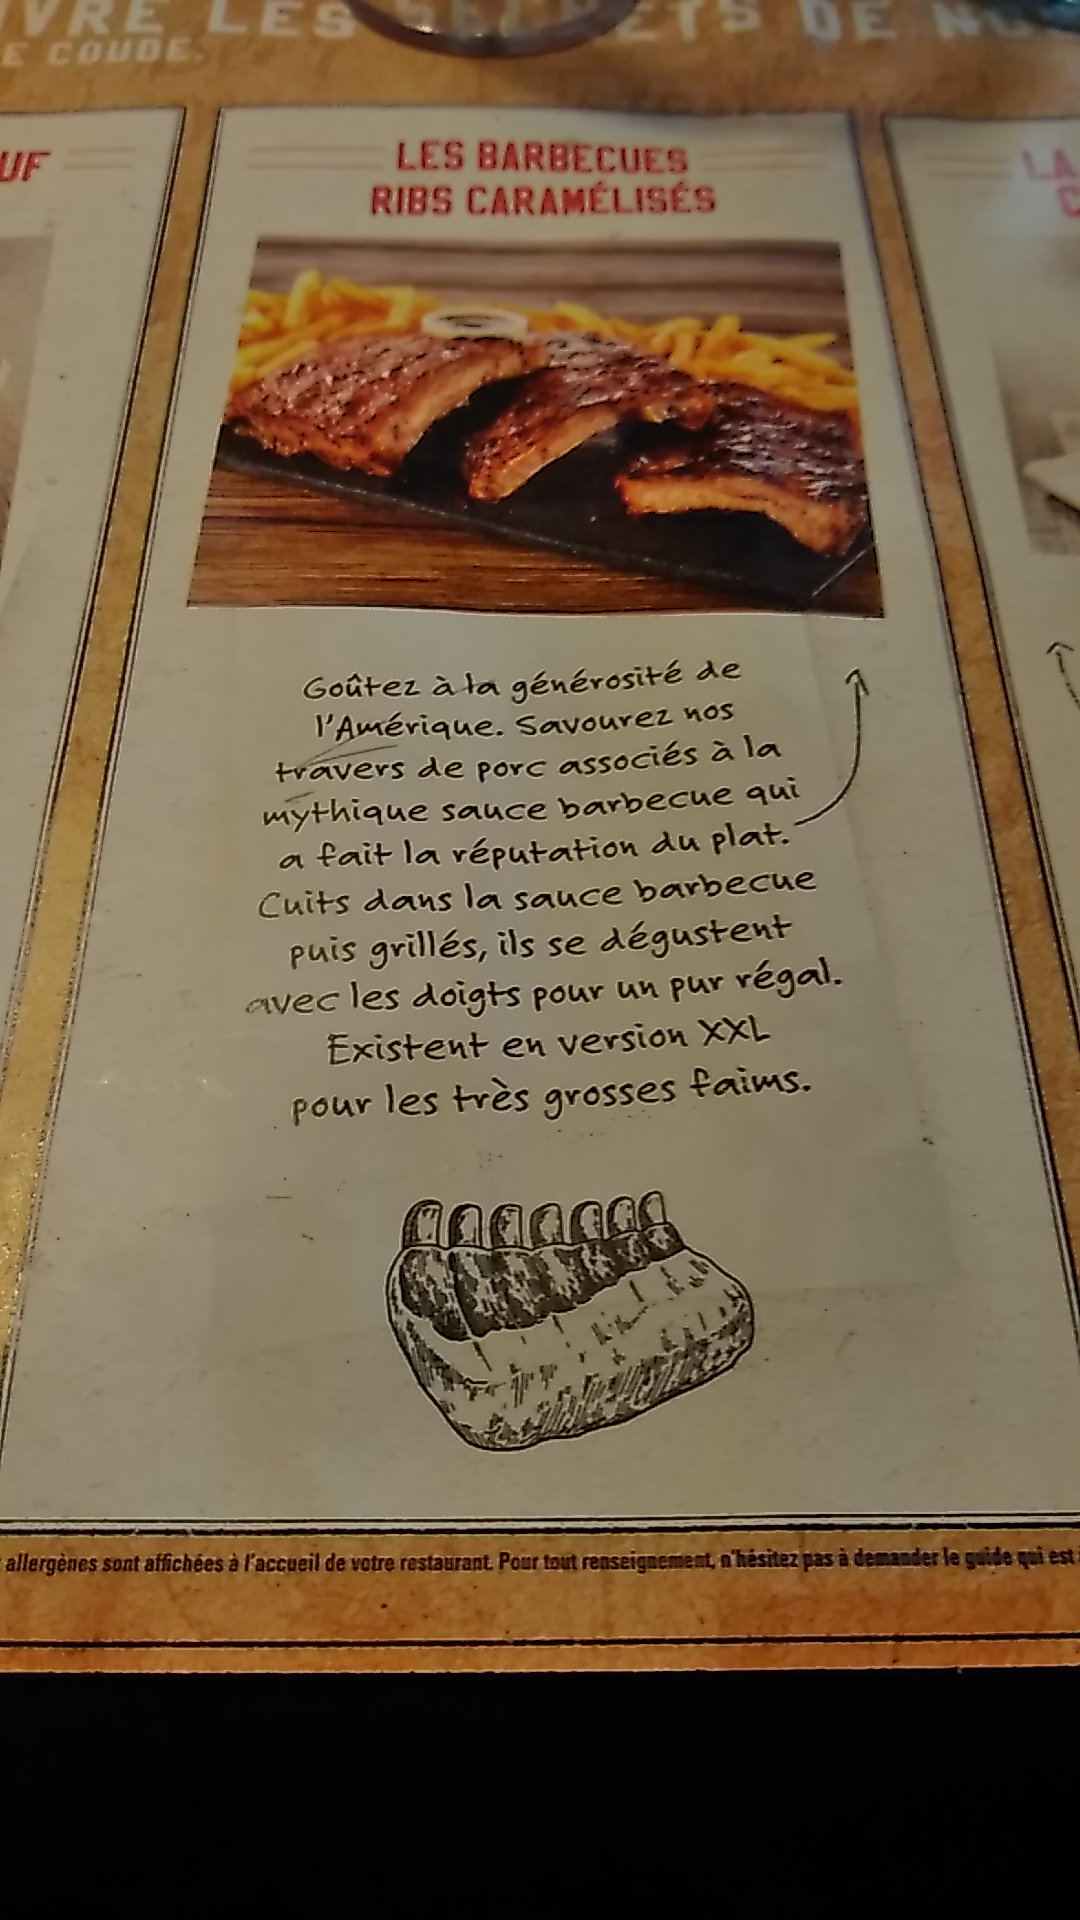 IVRE LES SECRETS DE
E COUDE.
LES BARBECUES
RIBS CARAMÉLISÉS
Goûtez à la générosité de
l'Amérique. Savourez nos
travers de porc associés à la
mythique sauce barbecue qui
a fait la réputation du plat.
Cuits dans la sauce barbecue
puis grillés, ils se dégustent
avec les doigts pour un pur régal.
Existent en version XXL
pour les très grosses faims.
UF
LA
C
allergènes sont affichées à l'accueil de votre restaurant. Pour tout renseignement, n'hésitez pas à demander le guide qui est